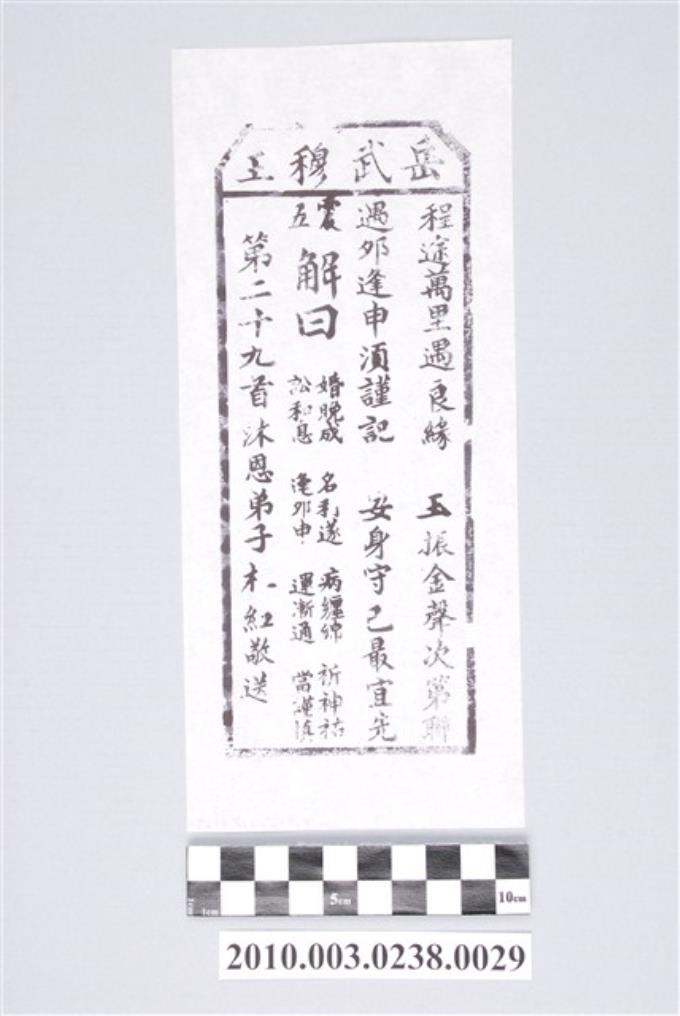 岳武穆王
程途萬里遇良緣 玉振金聲次第聯
遇卯逢申須謹記 安身守己最宜先
震五 解曰
婚晚成 名利遂 病纏綿 祈神祐
訟和息 逢卯申 運漸通 當謹慎
第二十九首 沐恩弟子 紅敬送
1cm 5cm 10cm
2010.003.0238.0029